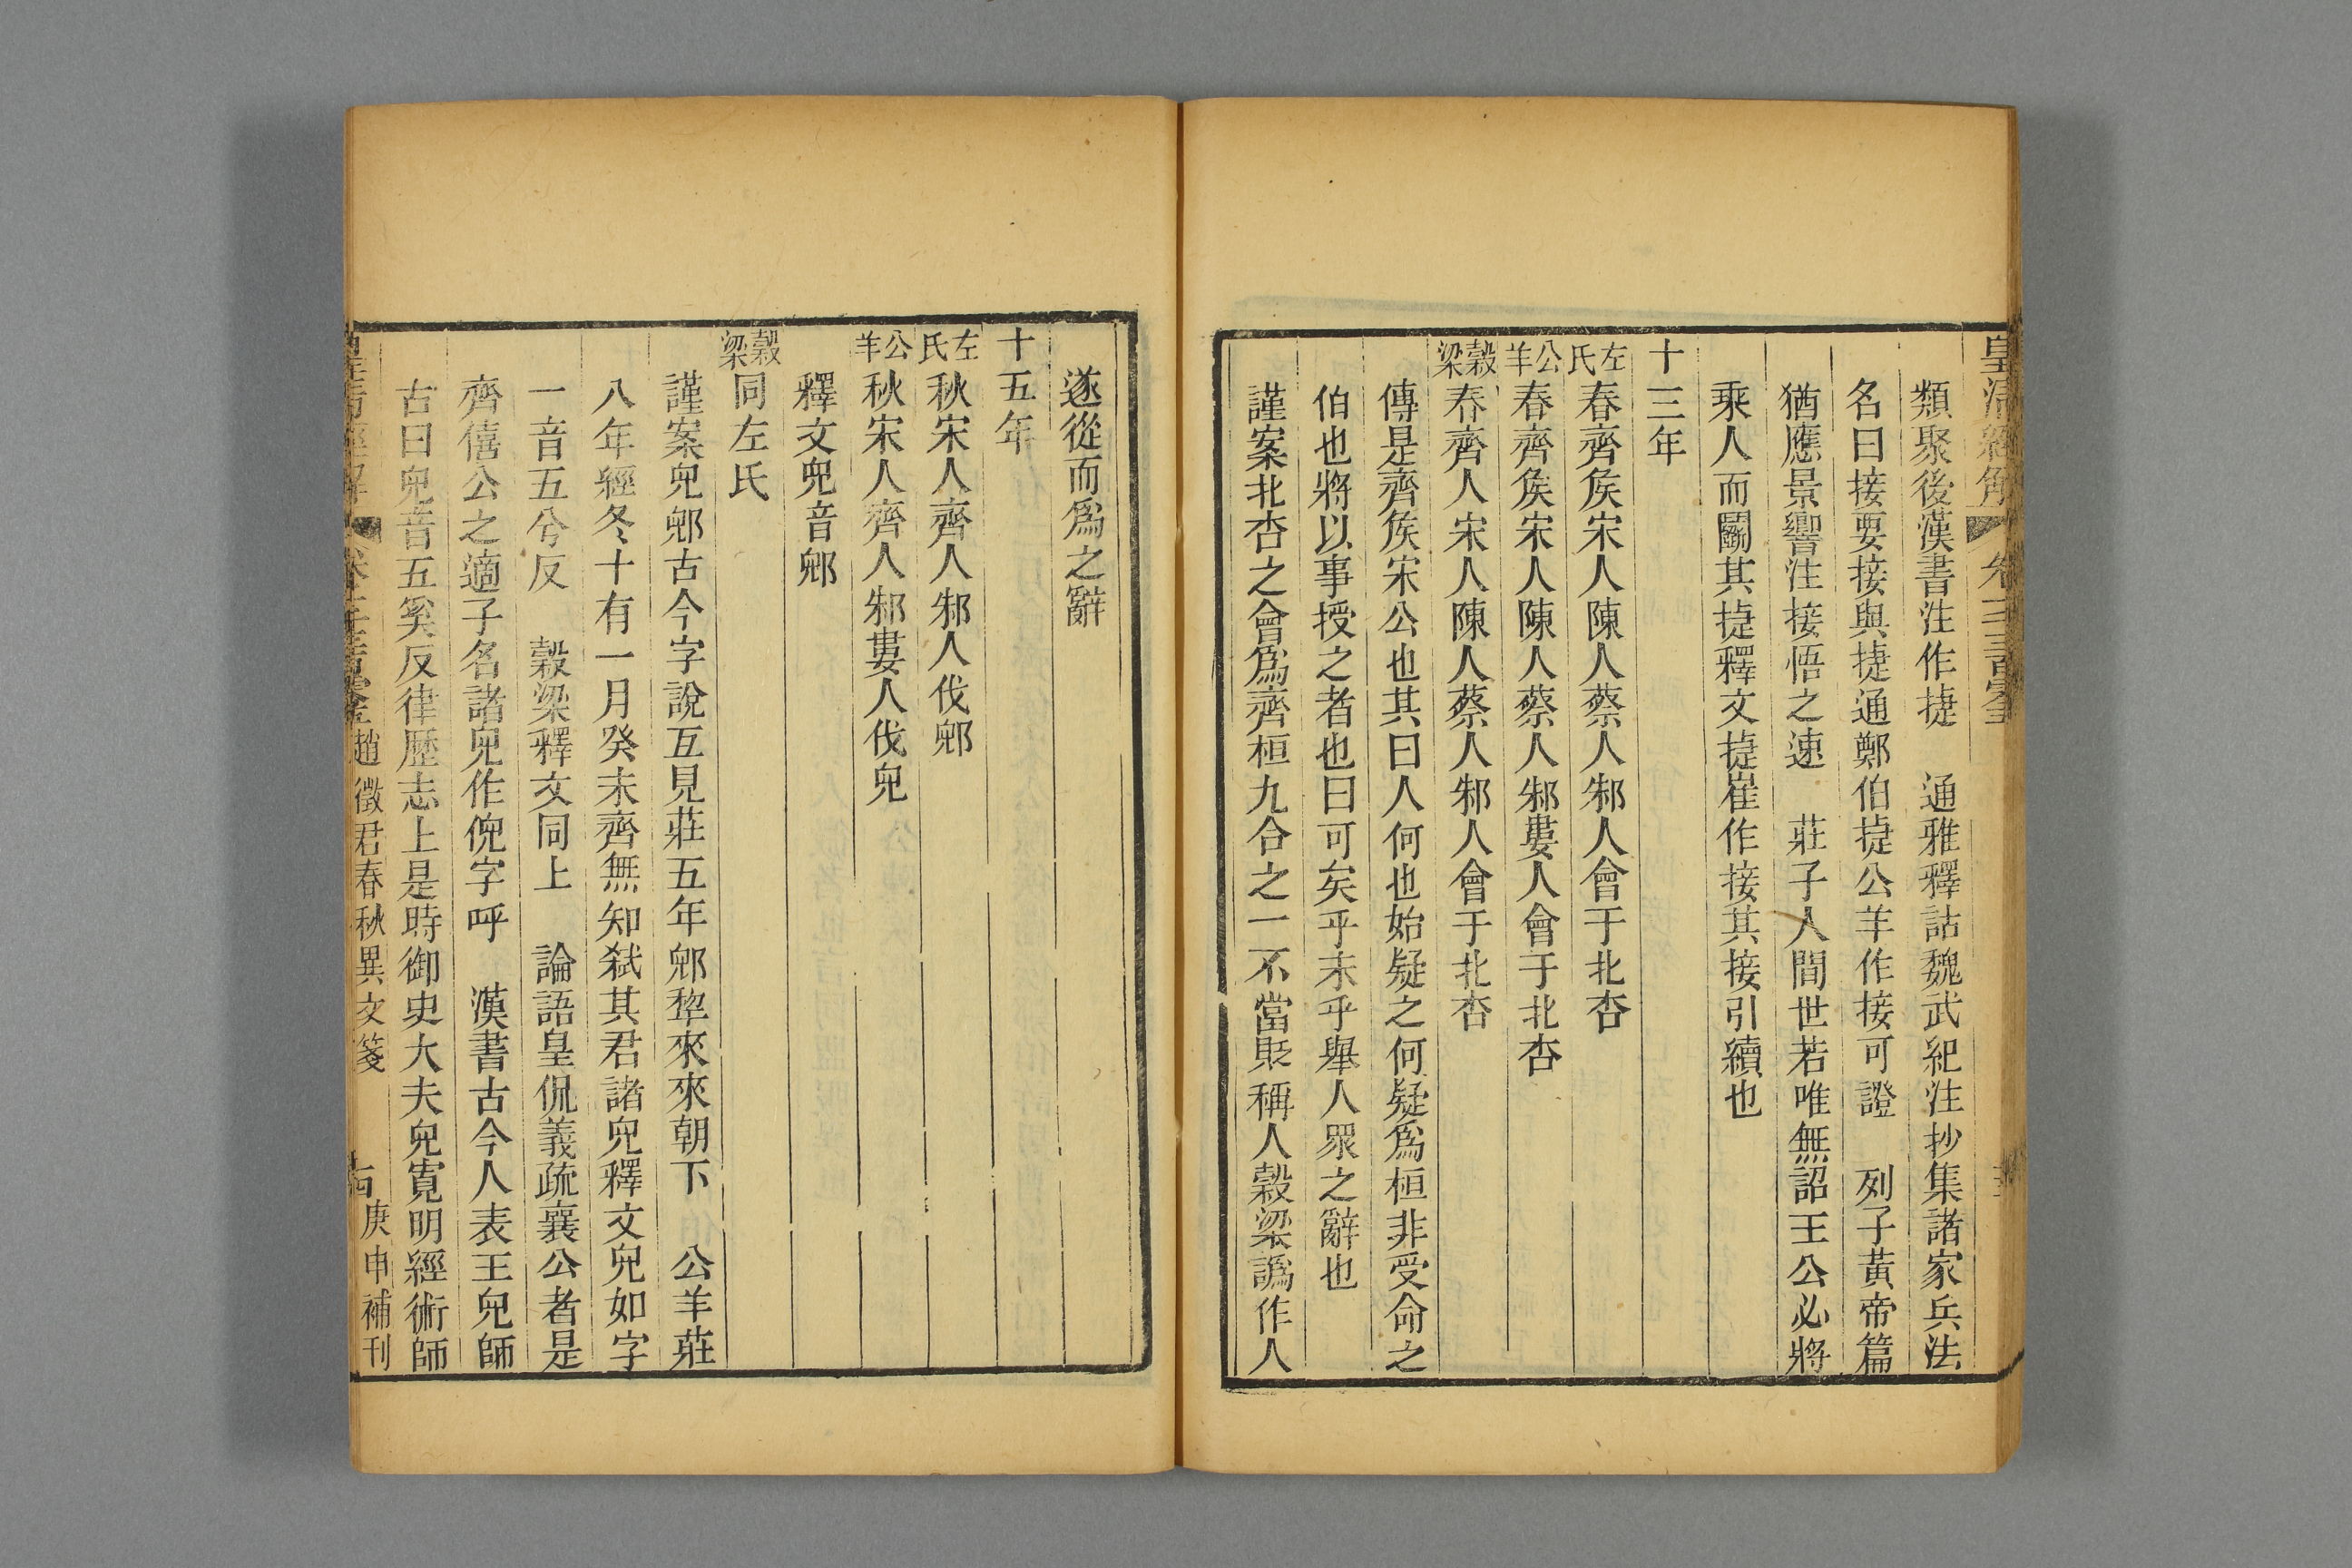 皇清經解
類聚後漢書注作捷　通雅釋詁魏武紀注抄集諸家兵法
名曰接要接與捷通鄭伯捷公羊作接可證　列子黃帝篇
猶應景響注接悟之速　莊子人間世若唯無詔王公必將
乘人而鬭其捷釋文捷崔作接其接引續也
十三年
左氏春齊侯宋人陳人蔡人邾人會于北杏
公羊春齊侯宋人陳人蔡人邾婁人會于北杏
穀梁春齊人宋人陳人蔡人邾人會于北杏
傳是齊侯宋公也其曰人何也始疑之何疑爲桓非受命之
伯也將以事授之者也曰可矣乎未乎舉人眾之辭也
謹案北杏之會爲齊桓九合之一不當貶稱人穀梁譌作人
遂從而爲之辭
十五年
左氏秋宋人齊人邾人伐郳
公羊秋宋人齊人邾婁人伐兒
釋文兒音郳
穀梁同左氏
謹案兒郳古今字說互見莊五年郳犂來來朝下　公羊莊
八年經冬十有一月癸未齊無知弑其君諸兒釋文兒如字
一音五兮反　穀梁釋文同上　論語皇侃義疏襄公者是
齊僖公之適子名諸兒作倪字呼　漢書古今人表王兒師
古曰兒音五奚反律歷志上是時御史大夫兒寬明經術師
趙徵君春秋異文箋
庚申補刊